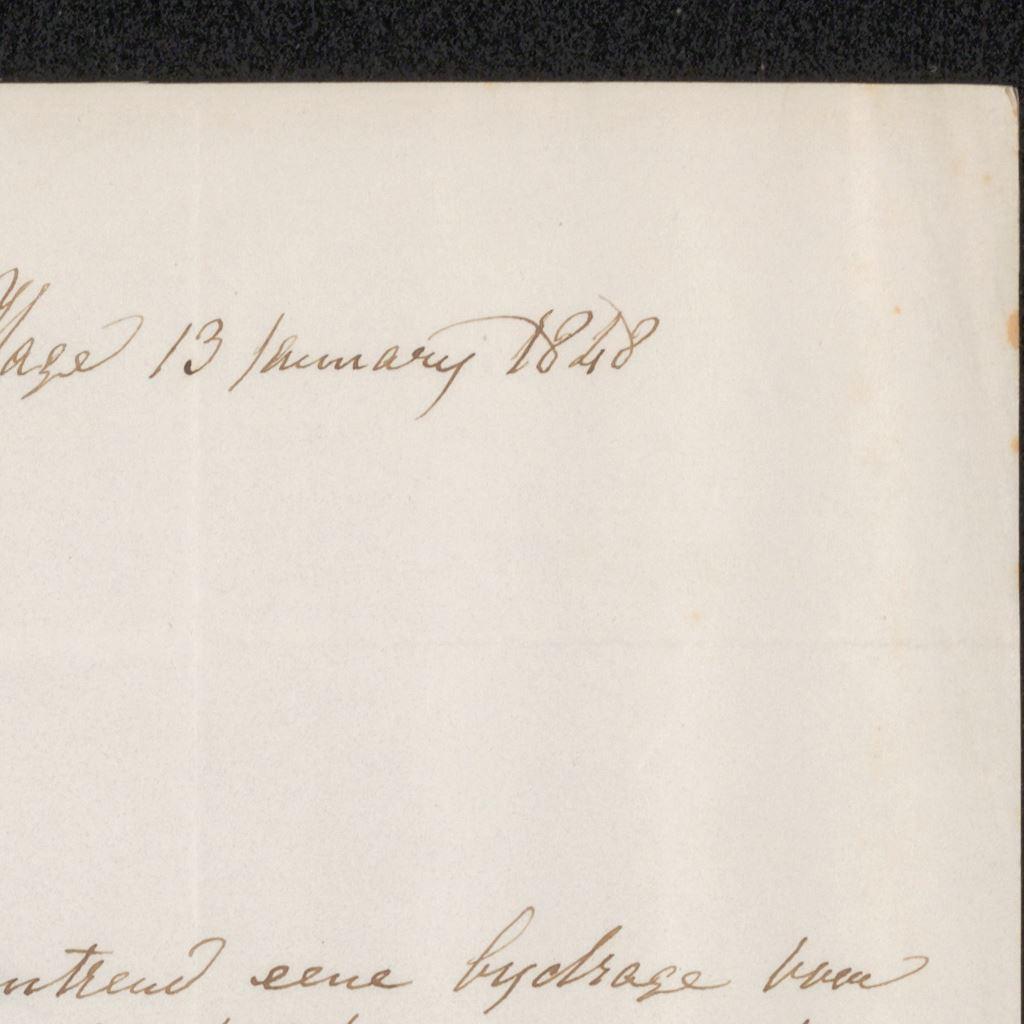 Hage 13 January 1848
eene bydrage voor